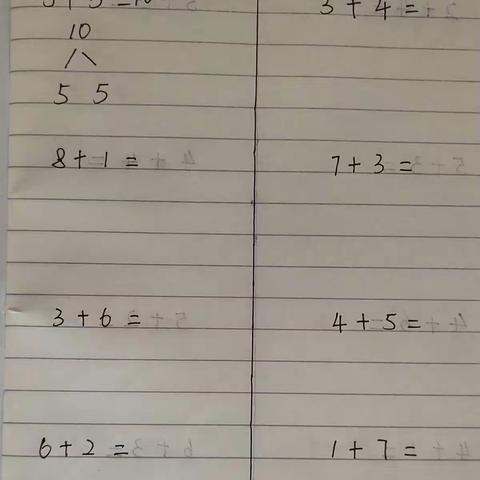 5+5=10
3+4=
10
5 5
8+1=
7+3=
3+6=
4+5=
6+2=
1+7=